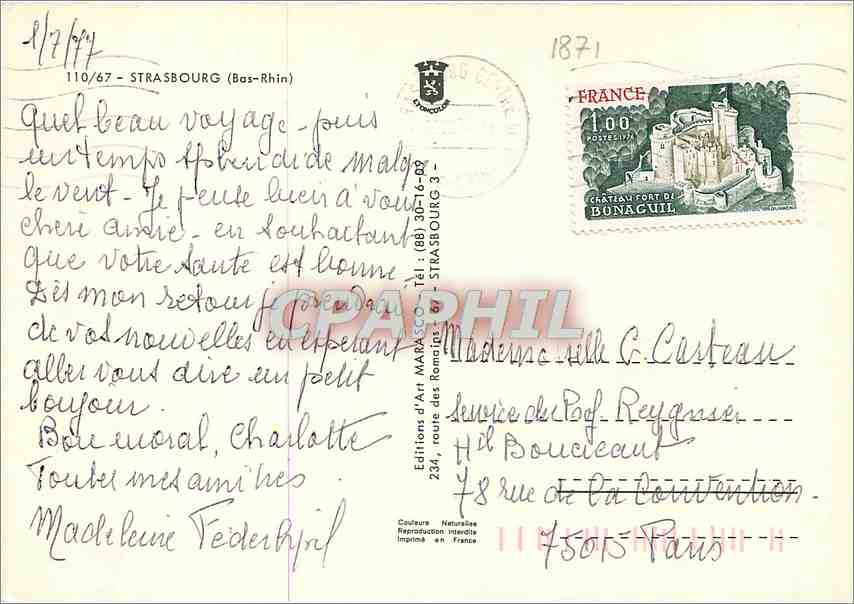 1/7/77
110/67 - STRASBOURG (Bas-Rhin)
Quel beau voyage - puis
un temps splendide malg
le vent - Je pense bien à vous
chère amie - en souhaitant
que votre santé est bonne -
Dès mon retour je prendrai
de vos nouvelles en espérant
aller vous dire un petit
bonjour.
Bon moral, Charlotte
Toutes mes amitiés
Madeleine
LYONCOLOR
Editions d'Art MARASCO - Tél : (88) 30-16-09
234, route des Romains - 67 - STRASBOURG 3 -
Couleurs Naturelles
Reproduction interdite
Imprimé en France
1871
FRANCE
1,00
POSTES 1976
CHÂTEAU FORT DE
BONAGUIL
Mademoiselle C. Casteau
Service du Prof. Reygnier
Htl Boucicaut
78 rue de la Convention.
75015 Paris
CPAPHIL